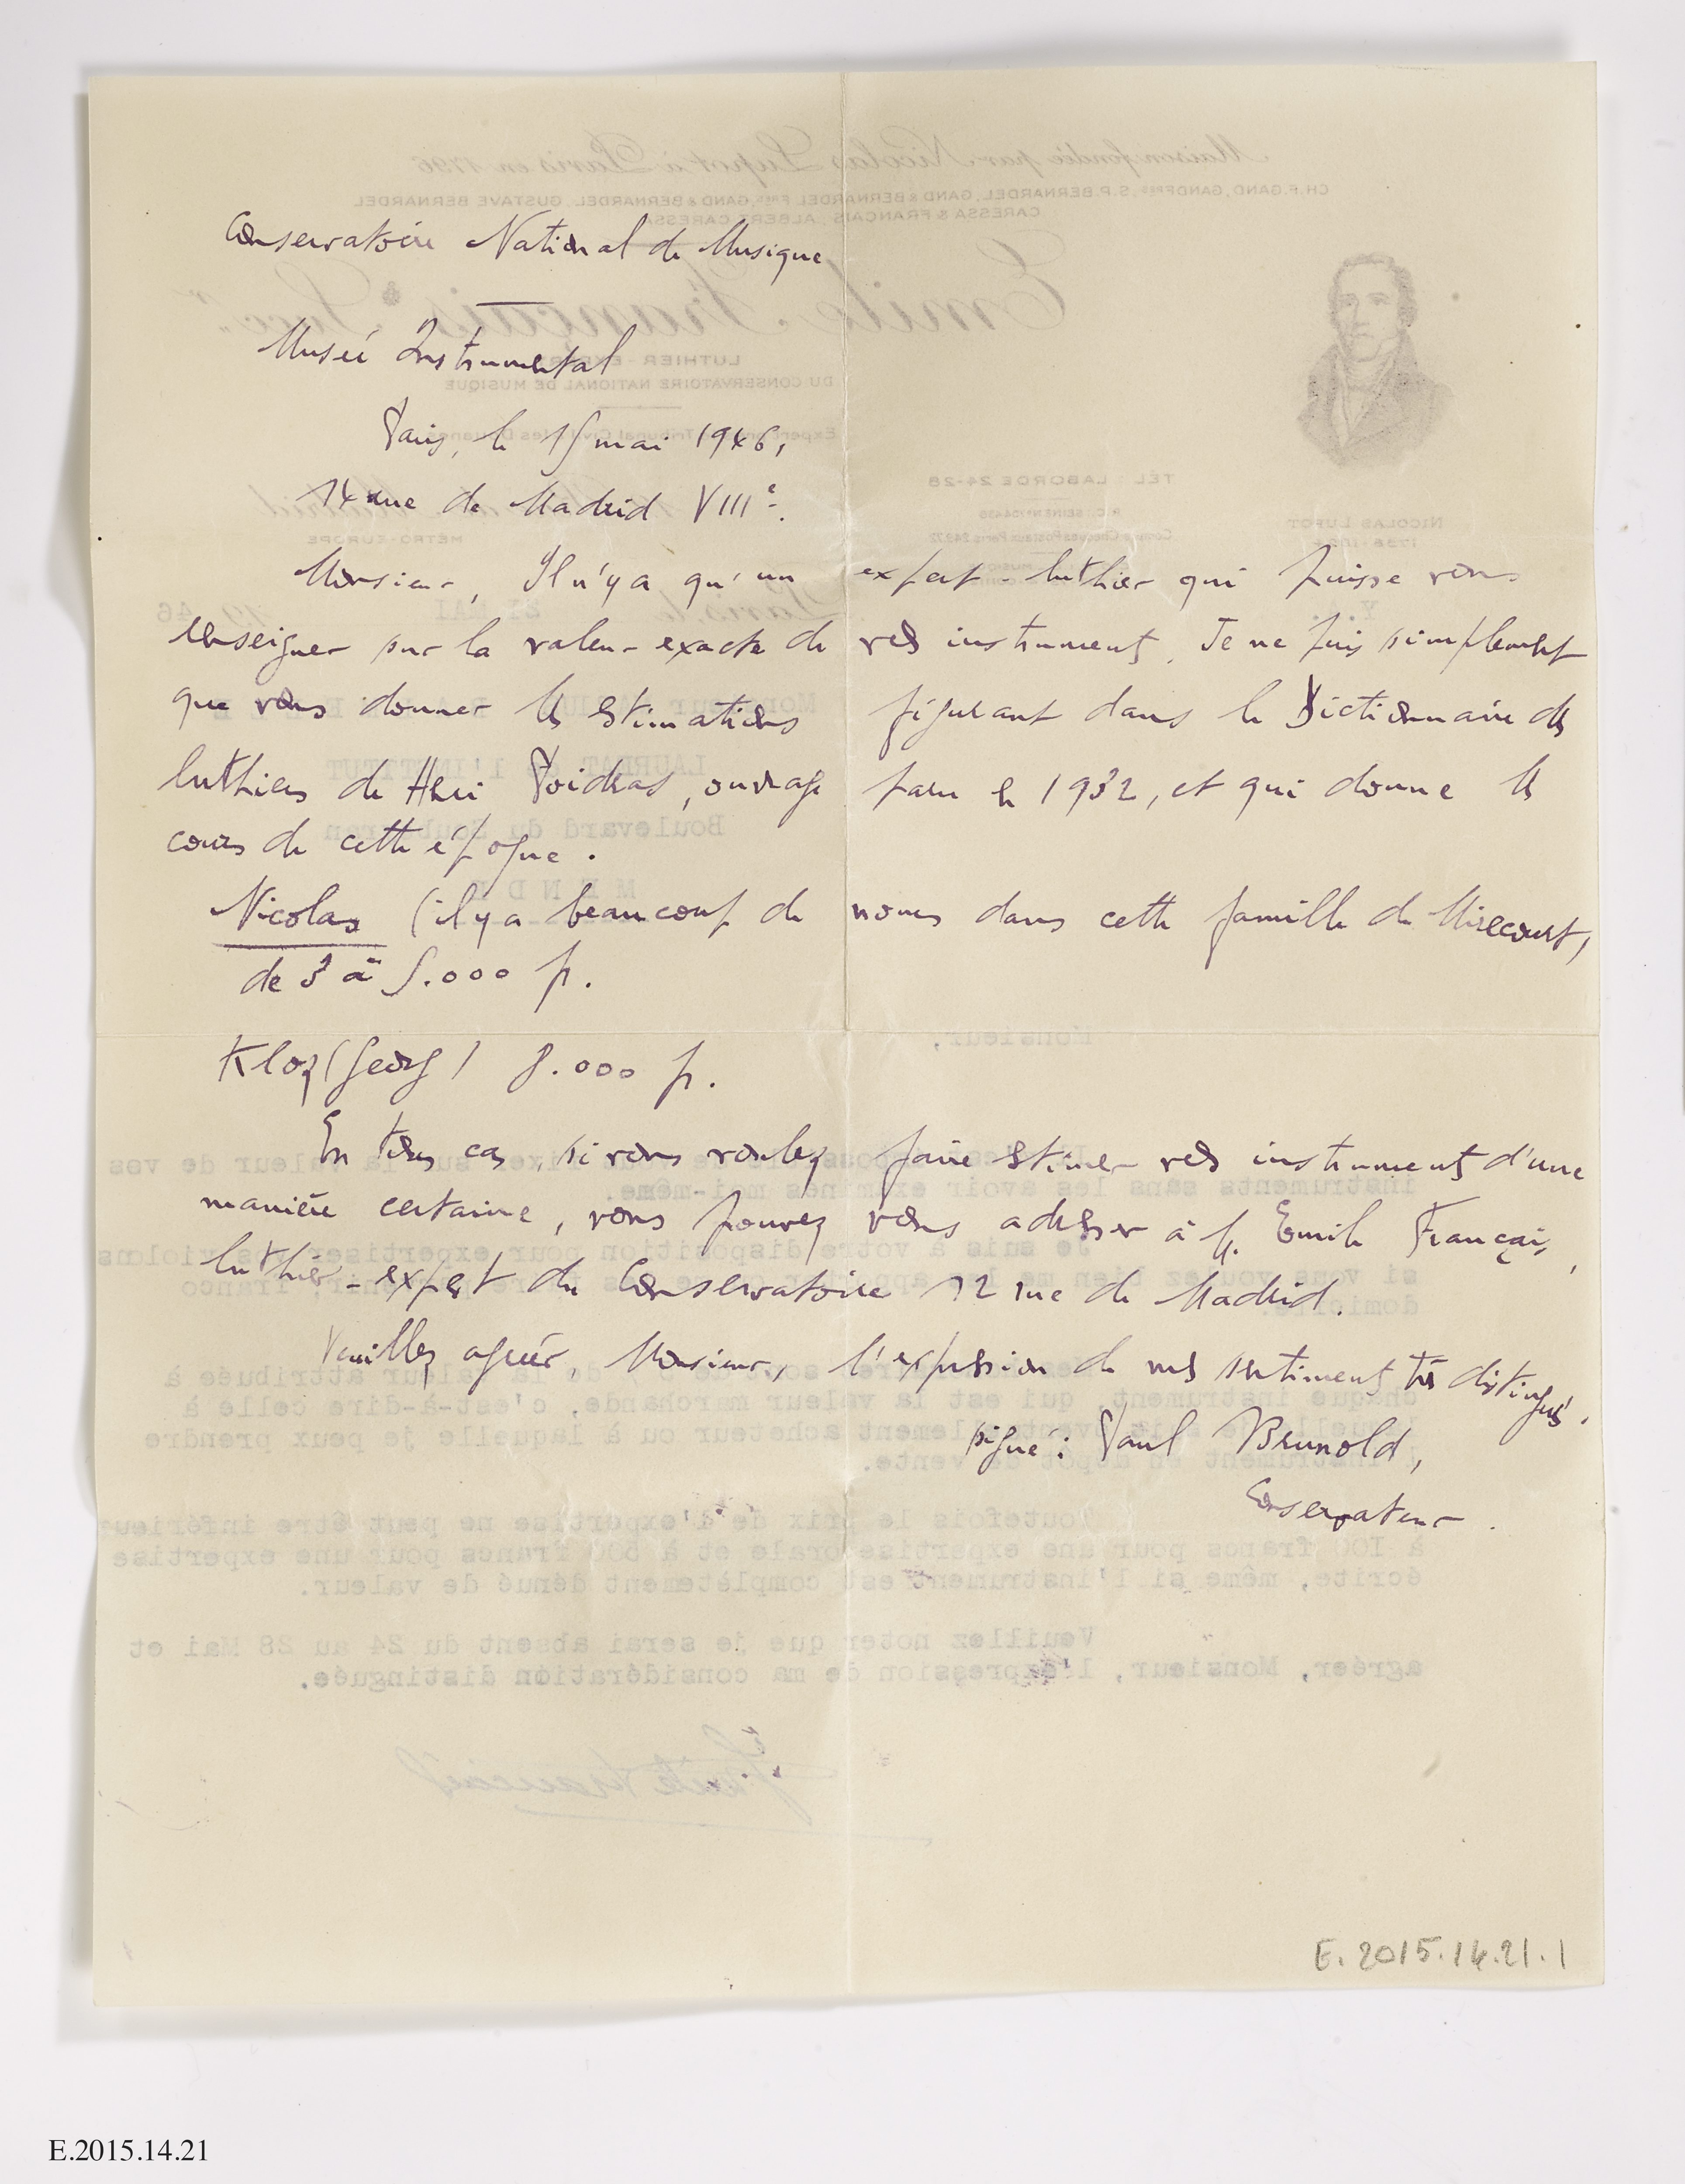 Conservatoire National de Musique
Musée Instrumental
Paris, le 15 mai 1946,
14 rue de Madrid VIIIe.
Monsieur, Il n'y a qu'un expert-luthier qui puisse vous
renseigner sur la valeur exacte de vos instruments. Je ne puis simplement
que vous donner les estimations figurant dans le Dictionnaire des
luthiers de Henri Poidras, ouvrage paru en 1932, et qui donne les
cours de cette époque.
Nicolas (il y a beaucoup de noms dans cette famille de Mirecourt)
de 3 à 5.000 fr.
Kloz (Georg) 8.000 fr.
En tous cas, si vous voulez faire estimer vos instruments d'une
manière certaine, vous pouvez vous adresser à M. Emile Français,
luthier-expert du Conservatoire 12 rue de Madrid.
Veuillez agréer, Monsieur, l'expression de mes sentiments très distingués.
signé : Paul Brunold,
Conservateur.
E.2015.14.21.1
E.2015.14.21